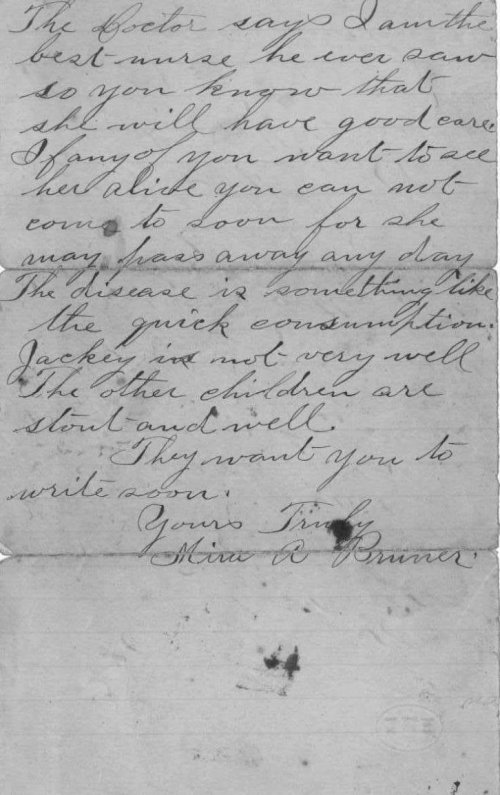 The Doctor says I am the
best nurse he ever saw
so you know that
she will have good care.
If any of you want to see
her alive you can not
come to soon for she
may pass away any day
The disease is something like
the quick consumption.
Jackey is not very well
The other children are
stout and well.
They want you to
write soon.
Yours Truly
Mira A Bruner.